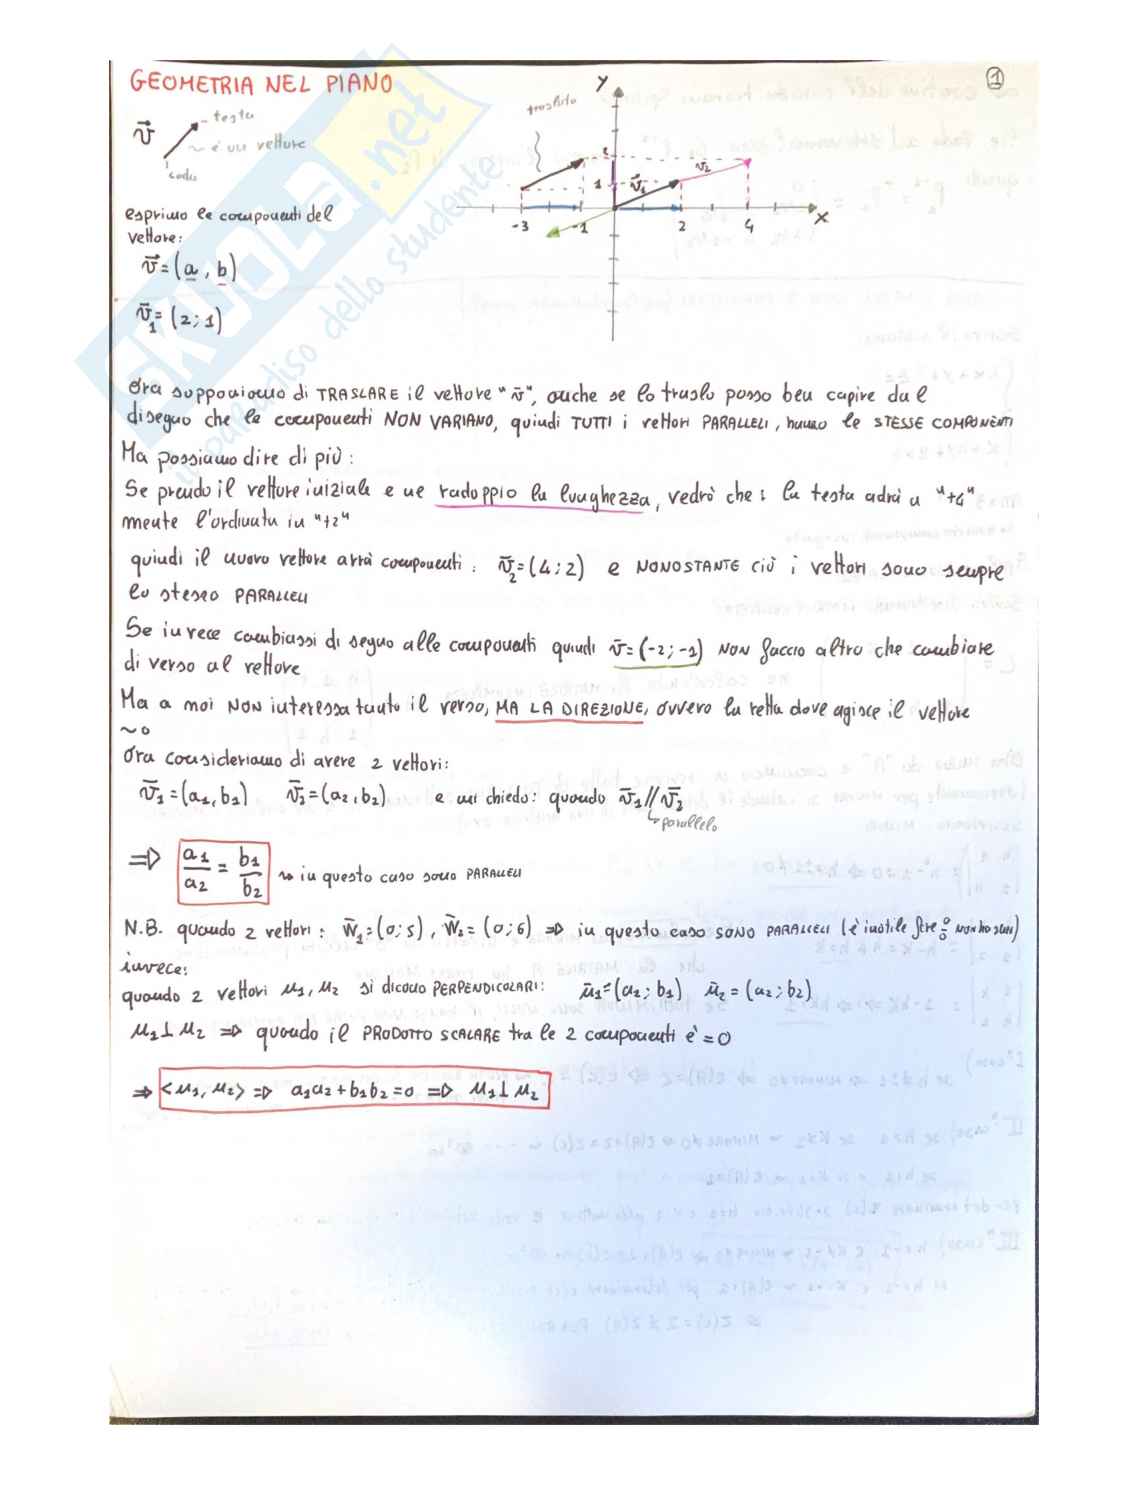 GEOMETRIA NEL PIANO
1
v⃗
testa
~ è un vettore
coda
traslato
y
x
2
1
v̄1
v2
-3
-1
2
4
esprimo le componenti del
vettore:
v⃗=(a , b)
v̄1=(2;1)
Ora supponiamo di TRASLARE il vettore "v̄", anche se lo traslo posso ben capire dal
disegno che le componenti NON VARIANO, quindi TUTTI i vettori PARALLELI, hanno le STESSE COMPONENTI
Ma possiamo dire di più:
Se prendo il vettore iniziale e ne radoppio la lunghezza, vedrò che: la testa adrà a "+4"
mente l'ordinata in "+2"
quindi il nuovo vettore avrà componenti: v̄2=(4;2) e NONOSTANTE ciò i vettori sono sempre
lo stesso PARALLELI
Se invece cambiassi di segno alle componenti quindi v̄=(-2;-1) NON faccio altro che cambiare
di verso al vettore
Ma a noi NON interessa tanto il verso, MA LA DIREZIONE, ovvero la retta dove agisce il vettore
~o
Ora consideriamo di avere 2 vettori:
v̄1=(a1,b1) v̄2=(a2,b2) e mi chiedo: quando v̄1//v̄2
↳ parallelo
⇒ a1/a2 = b1/b2 ~> in questo caso sono PARALLELI
N.B. quando 2 vettori: w̄1=(0;5), w̄2=(0;6) ⇒ in questo caso SONO PARALLELI (è inutile fare 0/0 NON HO SENSO)
invece:
quando 2 vettori μ1,μ2 si dicono PERPENDICOLARI: μ̄1=(a1;b1) μ̄2=(a2;b2)
μ1⊥μ2 ⇒ quando il PRODOTTO SCALARE tra le 2 componenti è=0
⇒ <μ1,μ2> ⇒ a1a2+b1b2=0 ⇒ μ1⊥μ2
SKUOLA.net
il paradiso dello studente